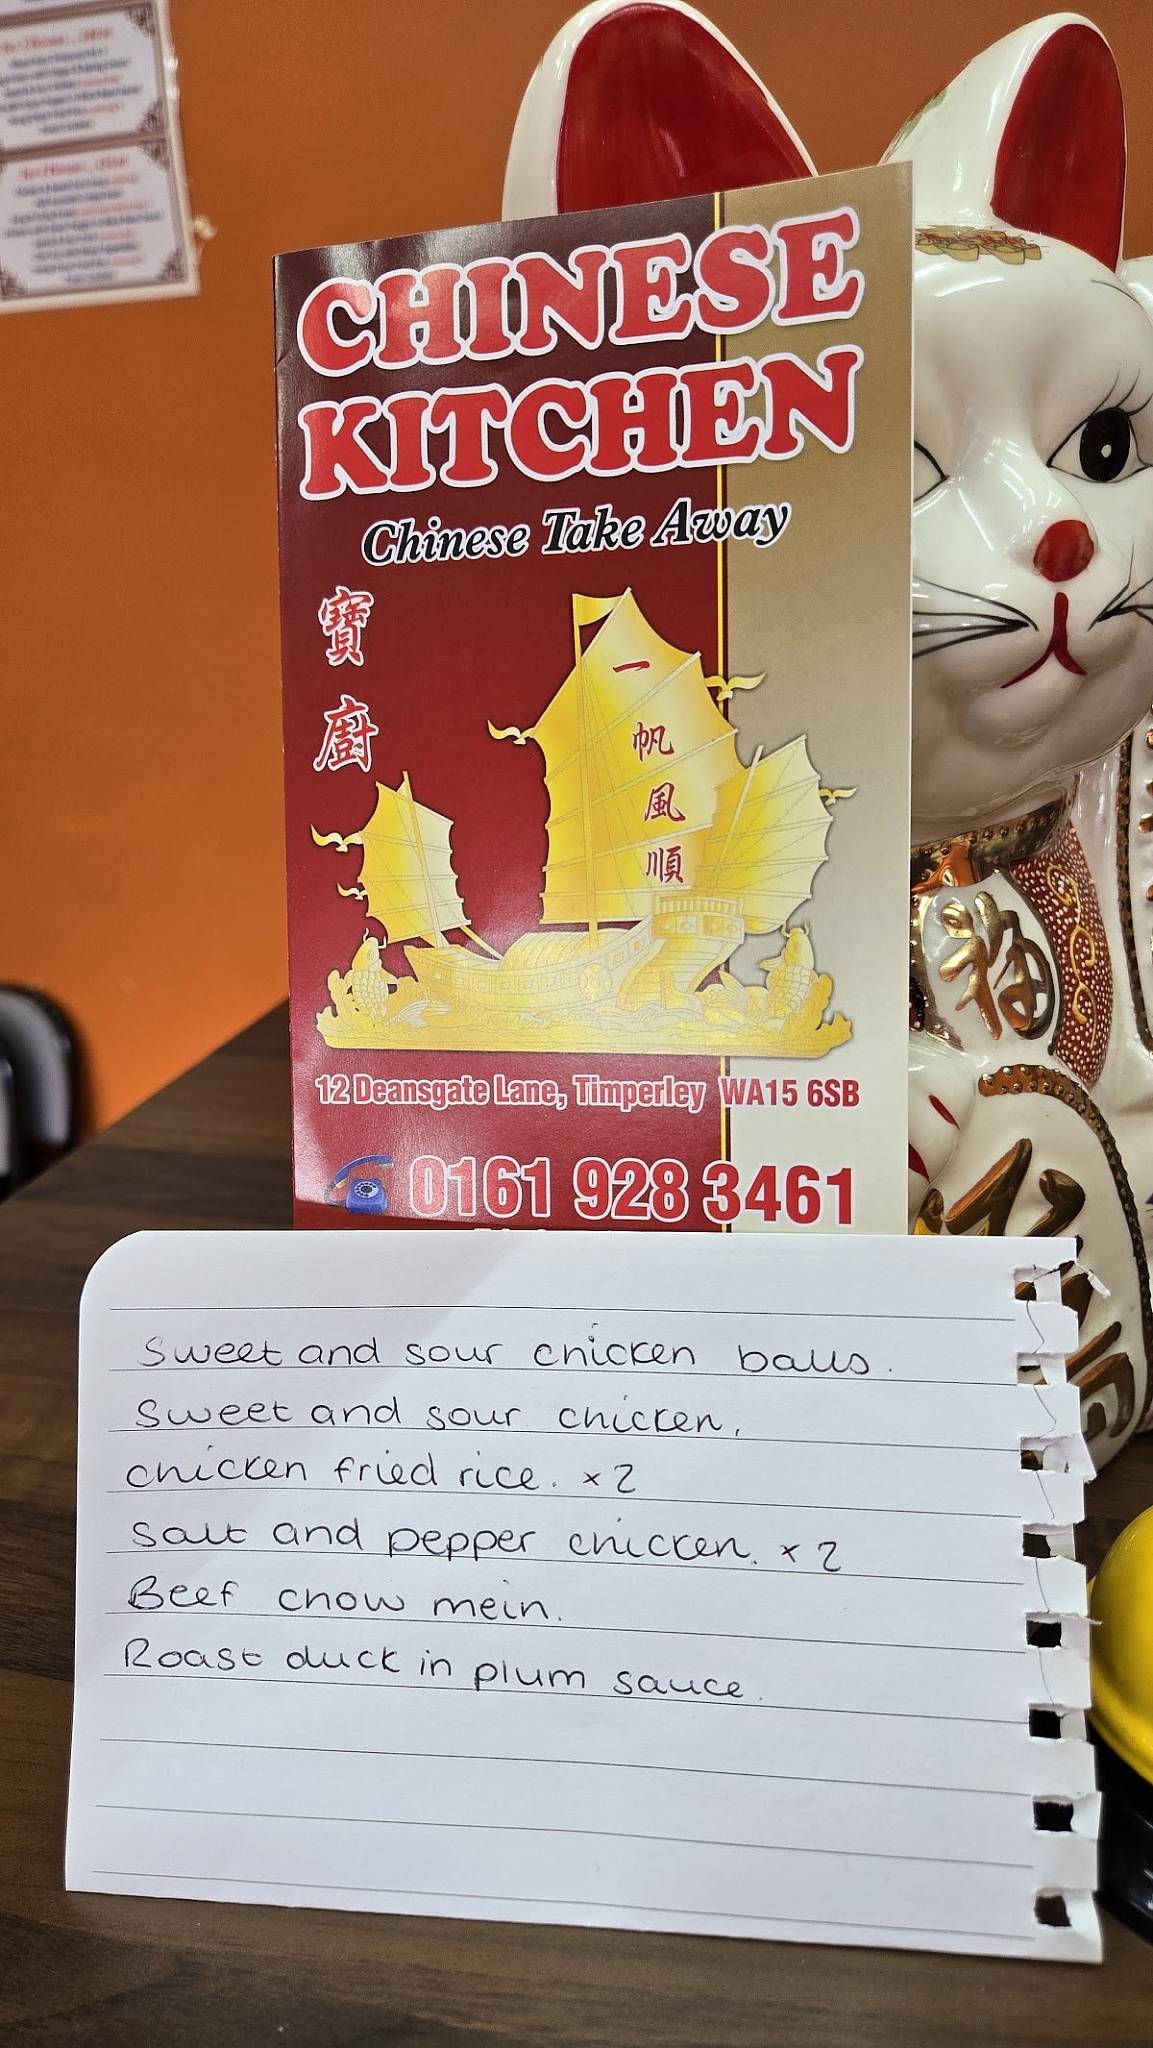 CHINESE
KITCHEN
Chinese Take Away
寶
廚
一
帆
風
順
12 Deansgate Lane, Timperley WA15 6SB
0161 928 3461
福
Sweet and sour chicken balls.
Sweet and sour chicken,
chicken fried rice. x 2
Salt and pepper chicken. x 2
Beef chow mein.
Roast duck in plum sauce.